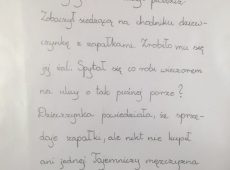 Zobaczył siedzącą na chodniku dziew-
czynkę z zapałkami. Zrobiło mu się
jej żal. Spytał się co robi wieczorem
na ulicy o tak puźnej porze?
Dziewczynka powiedziała, że sprze-
daje zapałki, ale nikt nie kupił
ani jednej. Tajemniczy mężczyzna